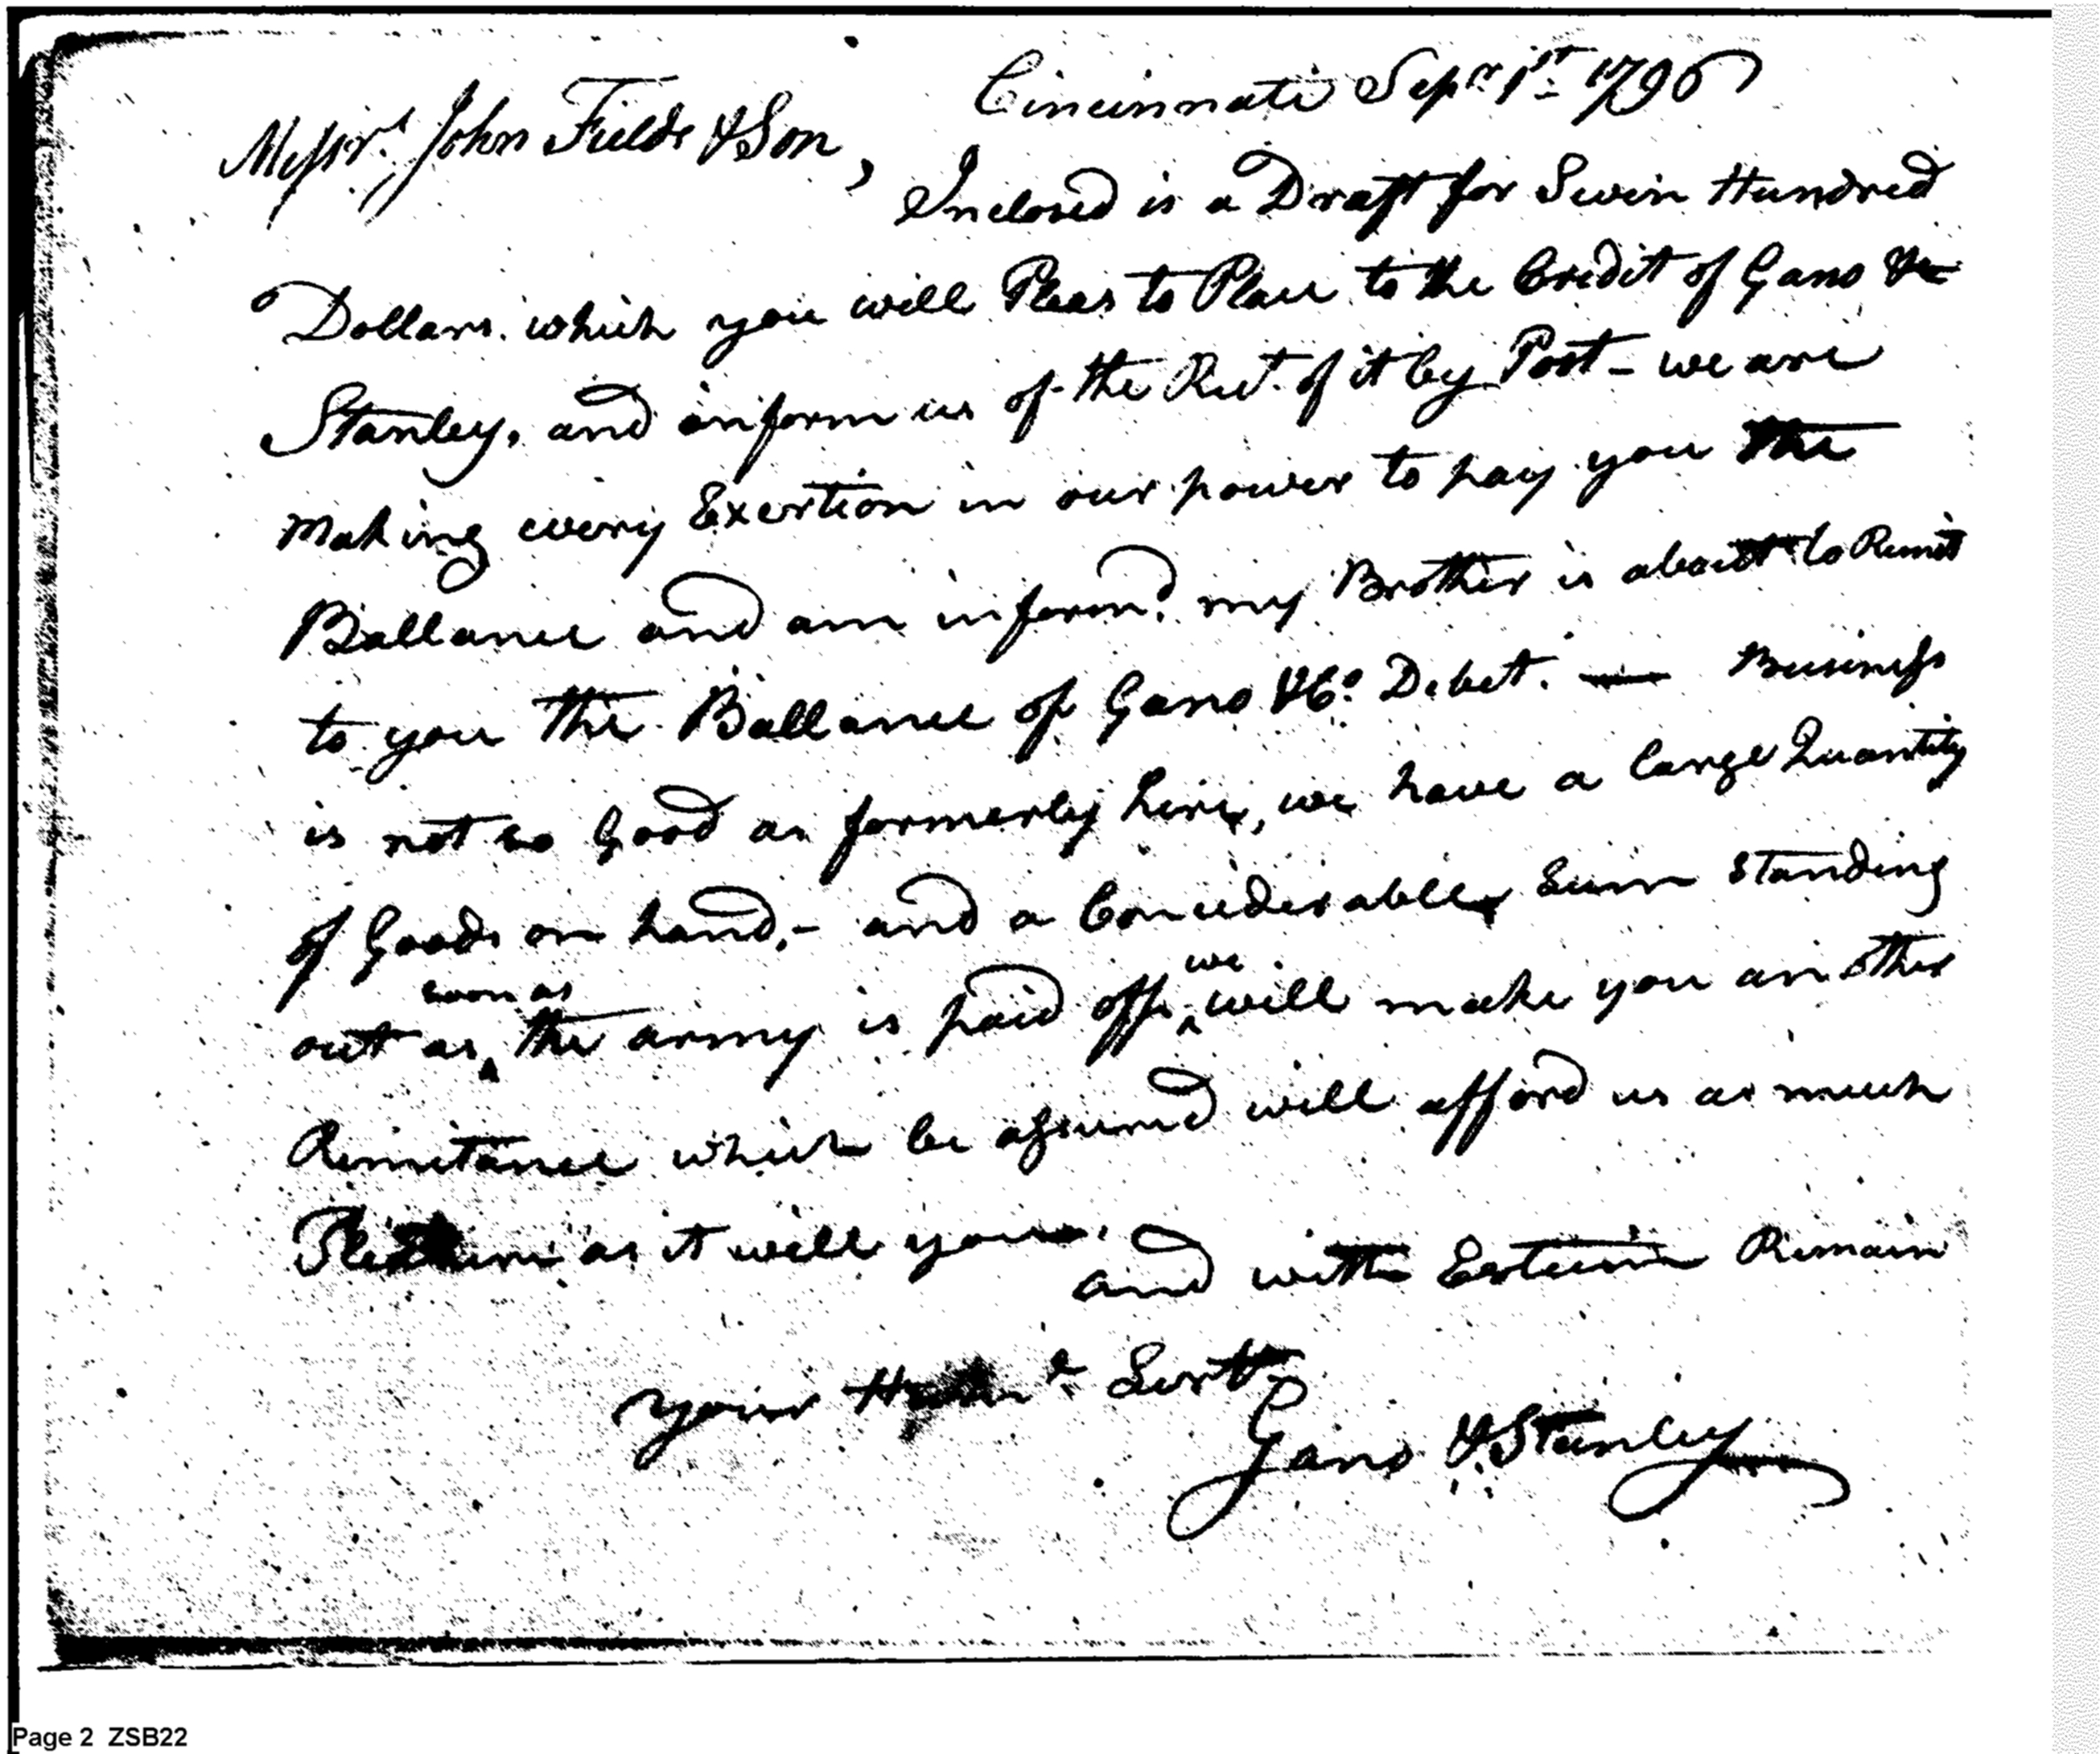 Cincinnati Sepr 1st 1796
Messrs. John Fields & Son,
Inclosed is a Draft for Seven Hundred
Dollars. which you will Pleas to Place to the Credit of Gano &
Stanley, and inform us of the Rect. of it by Post - we are
Making every Exertion in our power to pay you the
Ballance and am informd. my Brother is about to Remit
to you the Ballance of Gano & Co. Debet. — Business
is not so Good as formerly here, we have a large Quantity
of Goods on hand, - and a Considerable Sum standing
out as soon as the army is paid off we will make you another
Remitance which be assured will afford us as much
as it will you,
and with Esteem Remain
your Servt
Gano & Stanley
Page 2 ZSB22